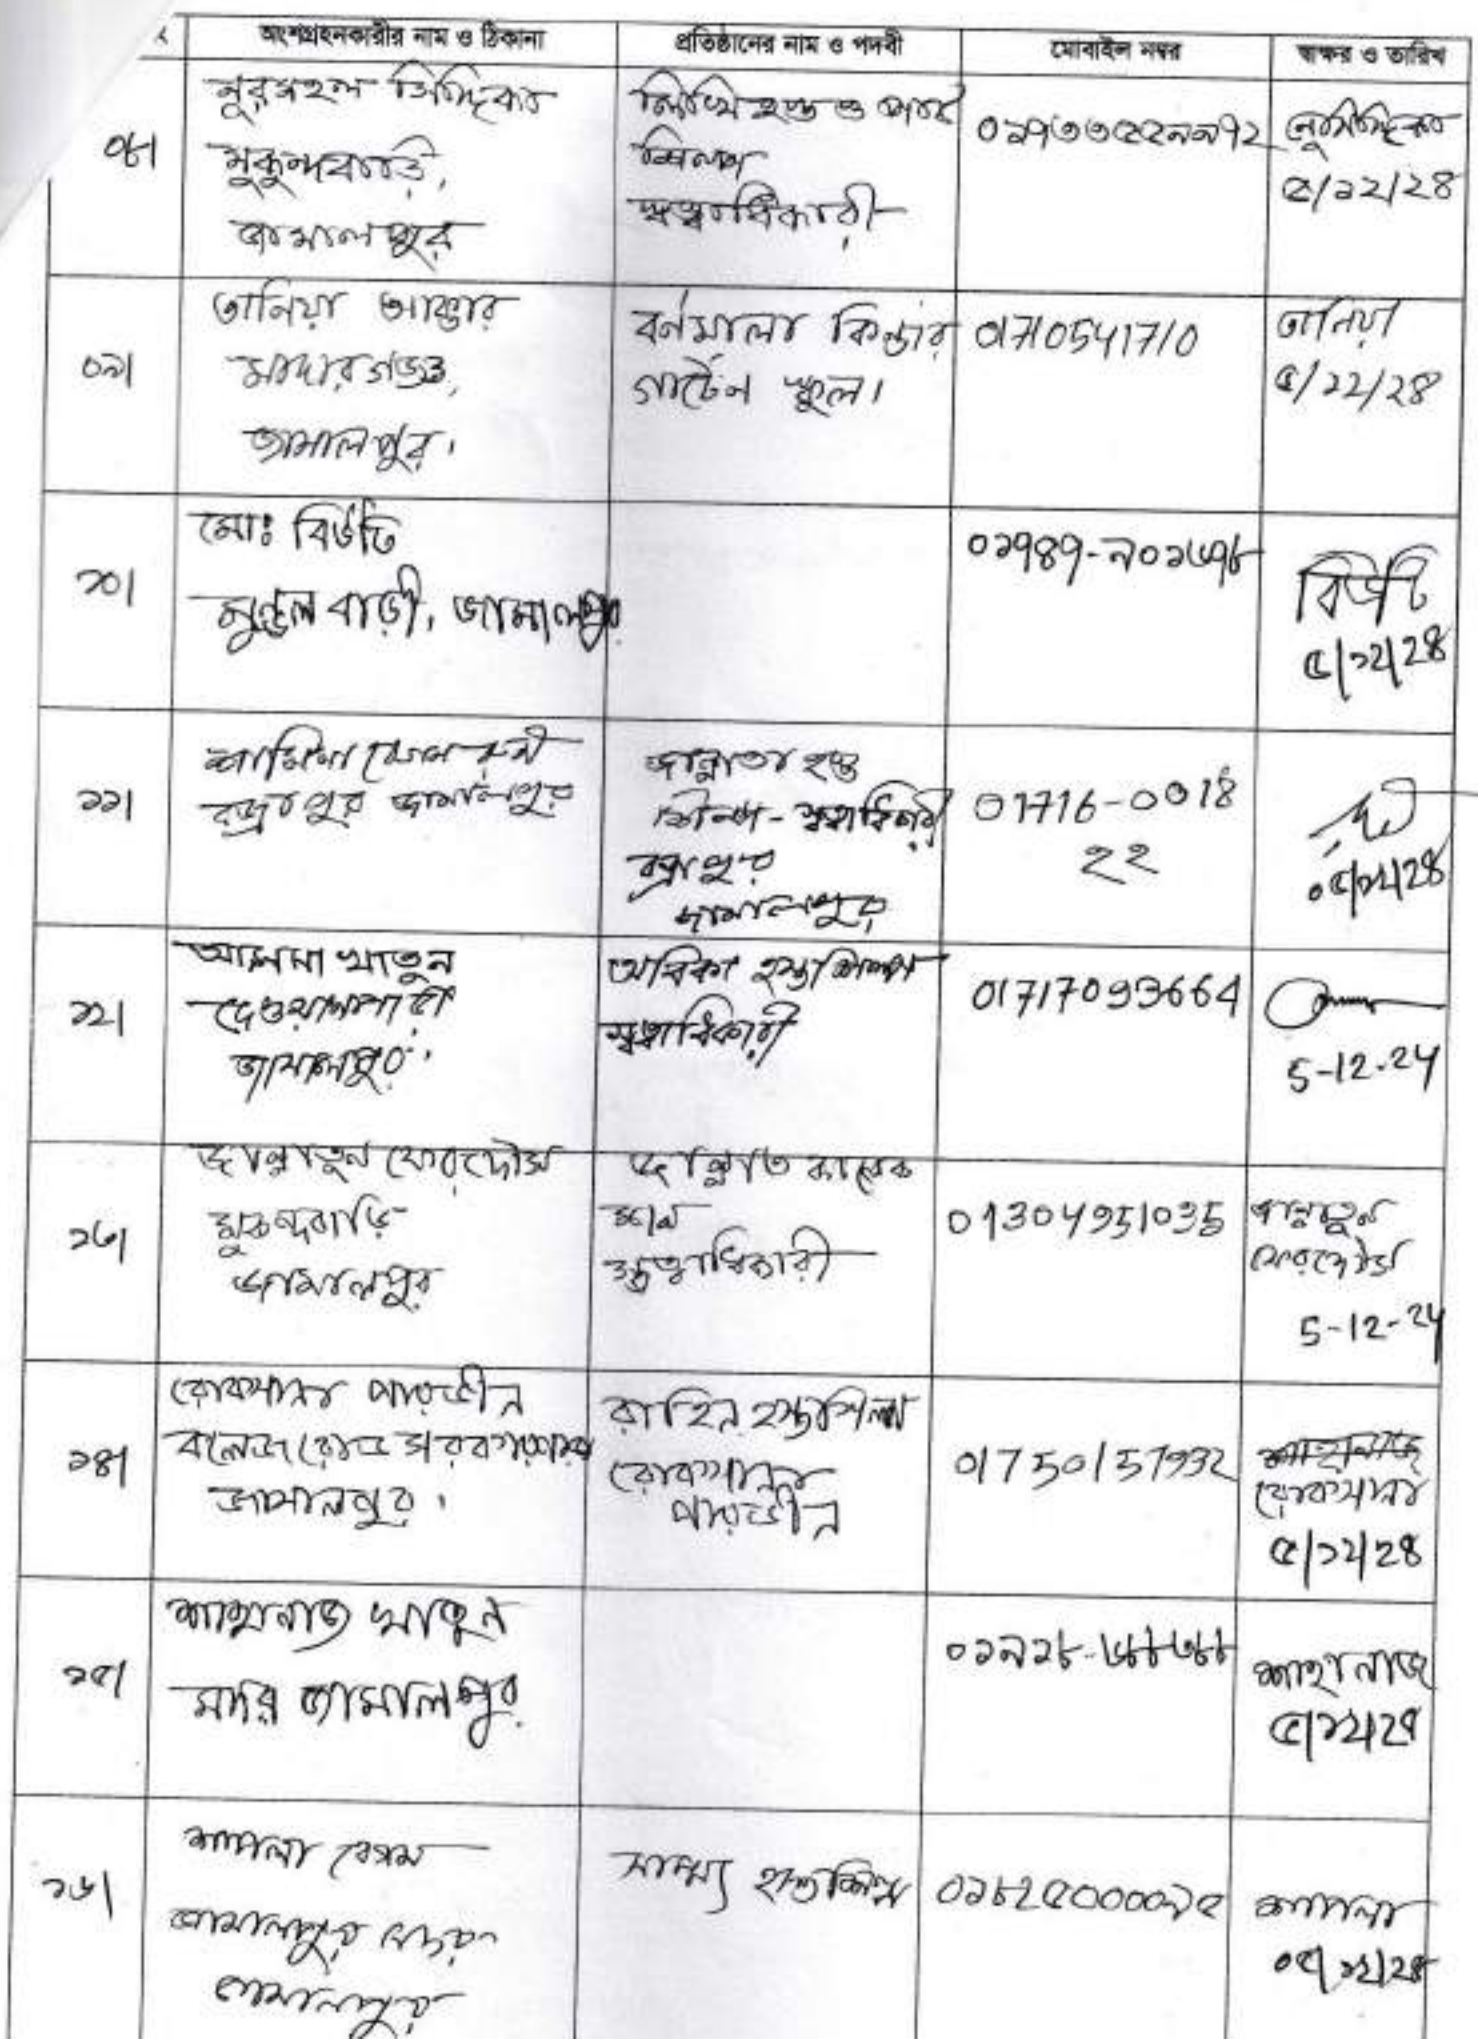 অংশগ্রহনকারীর নাম ও ঠিকানা প্রতিষ্ঠানের নাম ও পদবী মোবাইল নম্বর স্বাক্ষর ও তারিখ
০৮।
নুরমহল সিদ্দিকা
মুকুন্দবাড়ি,
জামালপুর
হস্ত ও
শিল্প
স্বত্বাধিকারী
০১৭৩৩৫২২৯৯৭২
৫/১২/২৪
০৯।
তানিয়া আক্তার
মাদারগঞ্জ,
জামালপুর।
বর্নমালা কিন্ডার
গার্টেন স্কুল।
01710541710
তানিয়া
৫/১২/২৪
১০।
মোঃ বিউটি
মুকুন্দ বাড়ী, জামালপুর
০১৭৪৭-৯০১৬৭৮
বিউটি
৫/১২/২৪
১১।
জামালপুর
জান্নাতা হস্ত
শিল্প - স্বত্বাধিকারী
জামালপুর
01716-0018
২২
০৫/১২/২৪
১২।
আসমা খাতুন
দেওয়ানপাড়া
জামালপুর।
হস্তশিল্প
স্বত্বাধিকারী
01717093664
5-12-24
১৩।
জান্নাতুন ফেরদৌস
মুকুন্দবাড়ি
জামালপুর
জান্নাত
স্বত্বাধিকারী
01304951035
জান্নাতুন
ফেরদৌস
5-12-24
১৪।
রোকসানা পারভীন
কলেজ রোড
জামালপুর।
রাহিন হস্তশিল্প
রোকসানা
পারভীন
01750157932
শাহানাজ
রোকসানা
৫/১২/২৪
১৫।
শাহানাজ খাতুন
জামালপুর
০১৯২৮-৬৮৮৩৮৮
শাহানাজ
৫/১২/২৪
১৬।
শাপলা বেগম
জামালপুর সদর
জামালপুর
হস্তশিল্প
০১৮২৫০০০০৭৫
শাপলা
০৫/১২/২৪